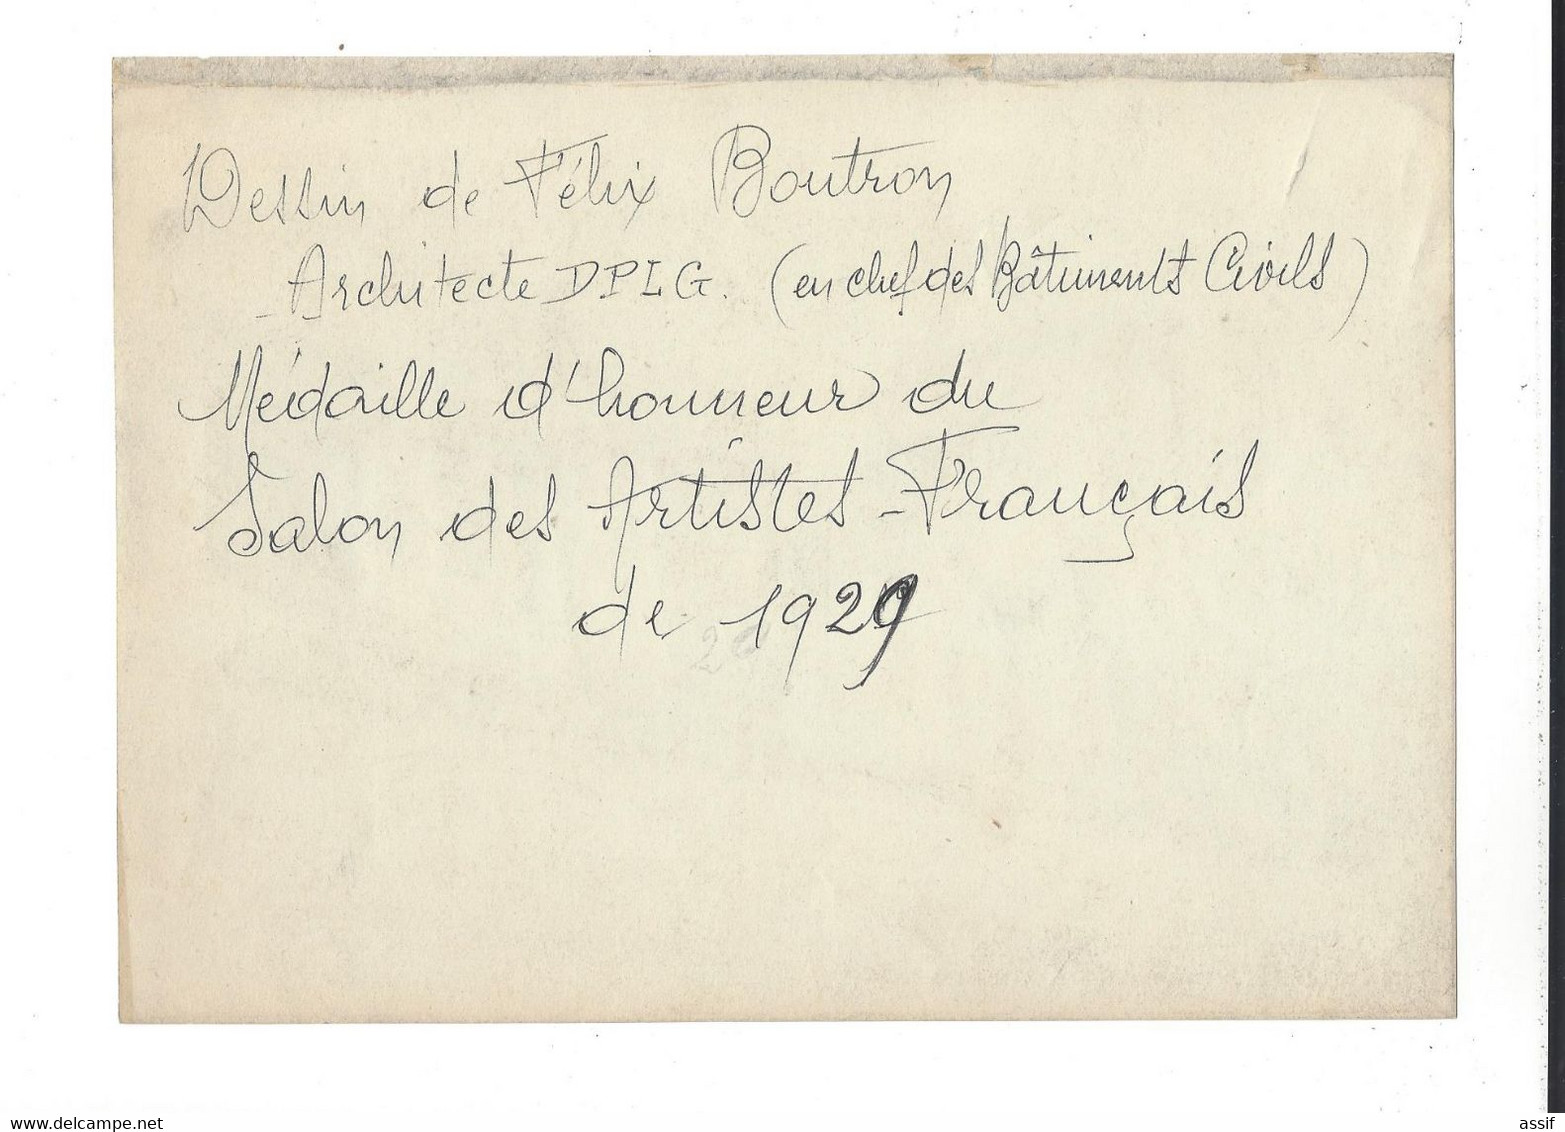 Dessin de Félix Boutron
- Architecte DPLG. (en chef des Bâtiments Civils)
Médaille d'honneur du
Salon des Artistes-Français
de 1929
www.delcampe.net
assif